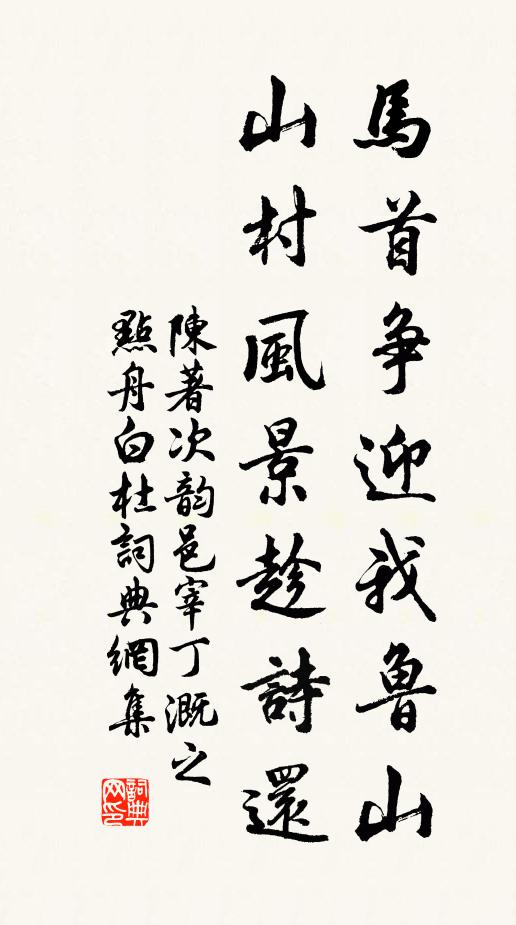 馬首爭迎我魯山
山村風景趁詩還
陳著次韵邑宰丁溉之
點舟白杜詞典網集
詞典网印